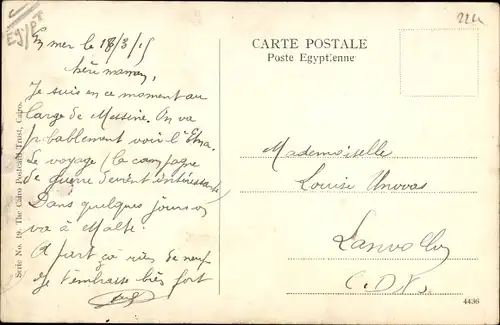 Egypt
224
En mer le 18/3/15
Chère maman,
Je suis en ce moment au
large de Messine. On va
probablement voir l'Etna.
Le voyage (la campagne
de guerre devient intéressante
Dans quelques jours on
va à Malte.
A part ça rien de neuf
Je t'embrasse très fort
CARTE POSTALE
Poste Egyptienne
Mademoiselle
Louise
Lanvollon
C.D.N.
Serie No. 19. The Cairo Postcard Trust, Cairo.
4436